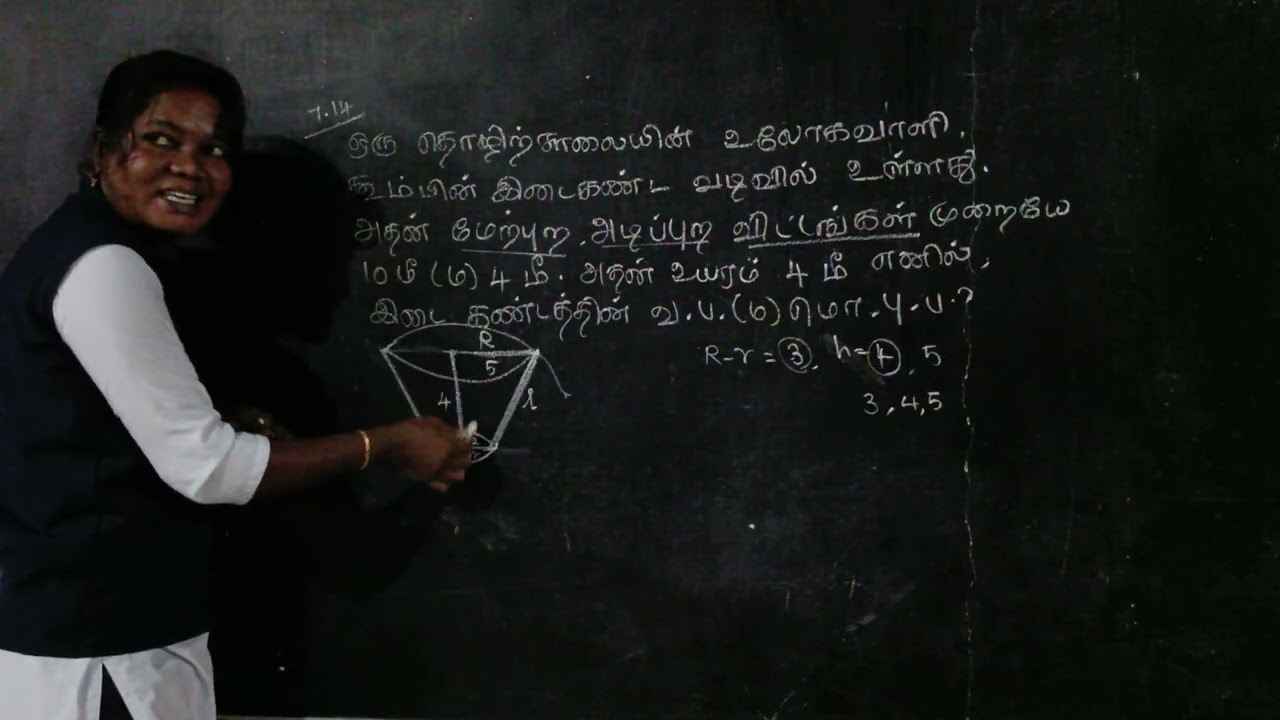 7.14
ஒரு தொழிற்சாலையின் உலோகவாளி,
கூம்பின் இடைகண்ட வடிவில் உள்ளது.
அதன் மேற்புற, அடிப்புற விட்டங்கள் முறையே
10 மீ (ம) 4 மீ. அதன் உயரம் 4 மீ எனில்,
இடை கண்டத்தின் வ.ப.(ம) மொ.பு.ப.?
R
5
4
l
R-r = 3, h = 4, 5
3, 4, 5